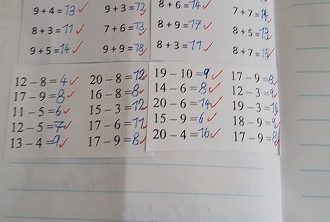 9 + 4 = 13 9 + 3 = 12 8 + 6 = 14 7 + 7 = 14
8 + 3 = 11 7 + 6 = 13 8 + 9 = 17
9 + 5 = 14 9 + 9 = 18 8 + 3 = 11
12 − 8 = 4 20 − 8 = 12 19 − 10 = 9 17 − 9 = 8
17 − 9 = 8 16 − 8 = 8 14 − 6 = 8 12 − 3 = 9
11 − 5 = 6 15 − 3 = 12 20 − 6 = 14 19 − 3 = 16
12 − 5 = 7 17 − 6 = 11 15 − 9 = 6 18 − 9 = 9
13 − 4 = 9 17 − 9 = 8 20 − 4 = 16 17 − 9 = 8